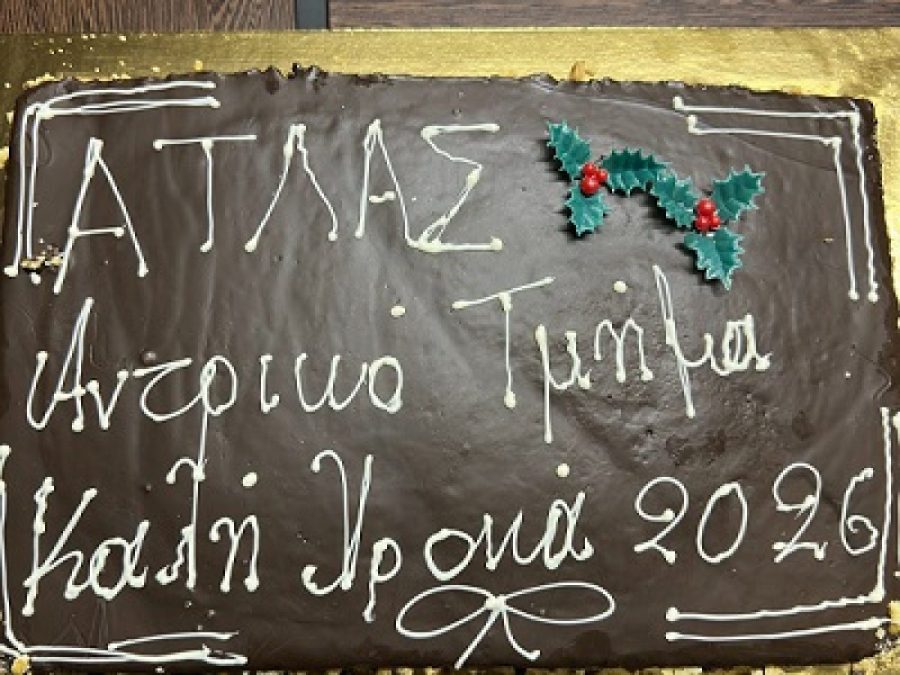 ΑΤΛΑΣ
Αντρικό Τμήμα
Καλή Χρονιά 2026